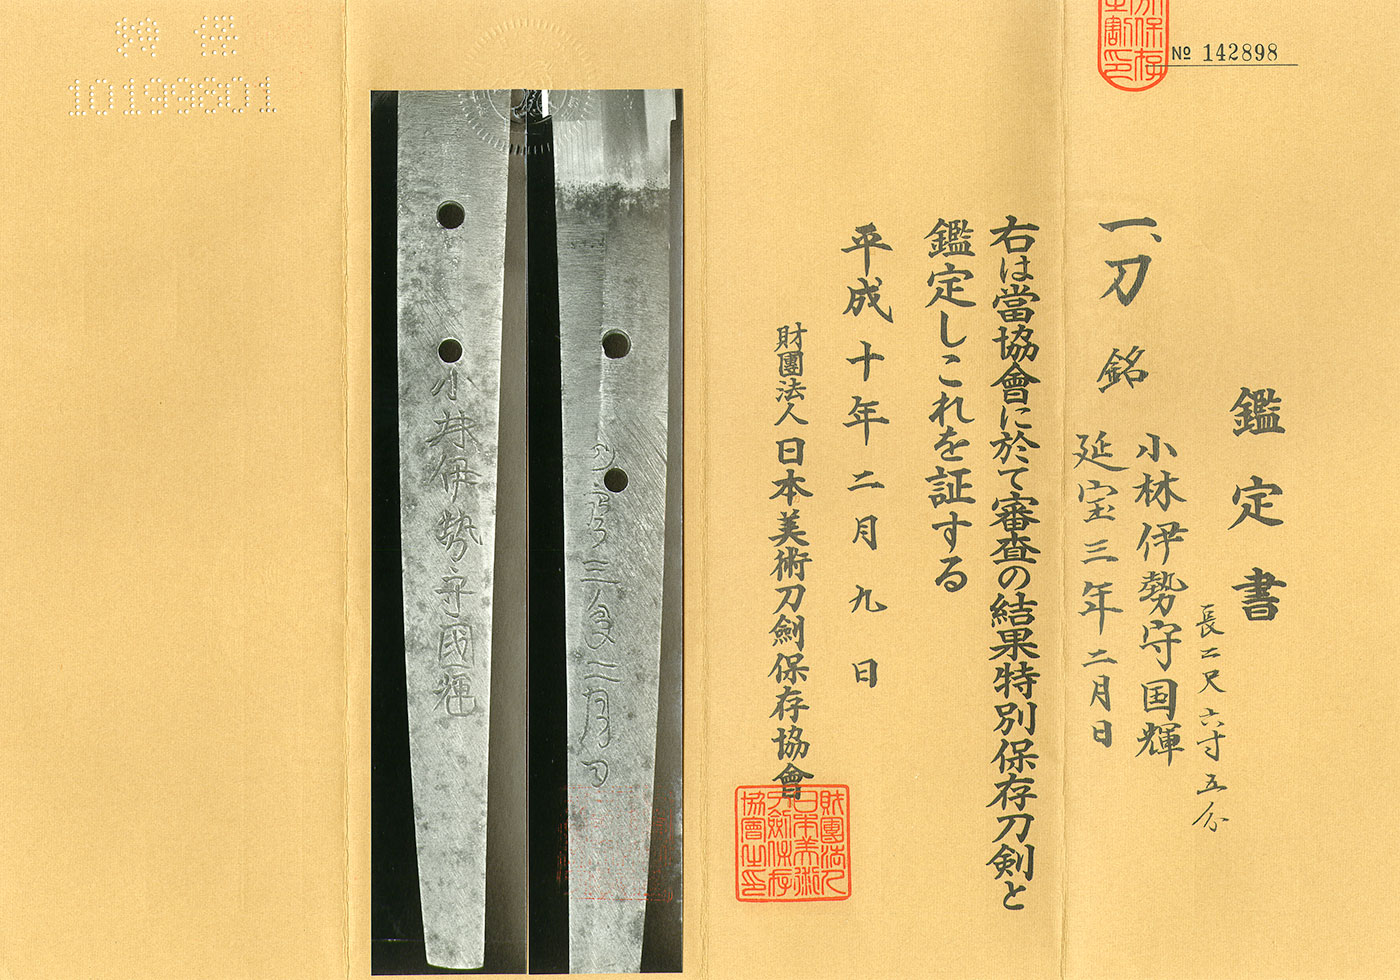 № 142898
鑑定書
一、刀 銘 小林伊勢守国輝
延宝三年二月日
長二尺六寸五分
右は當協會に於て審査の結果特別保存刀剣と
鑑定しこれを証する
平成十年二月九日
財團法人日本美術刀劍保存協會
財團法人日本美術刀劍保存協會之印
小林伊勢守國輝
三年二月日
10199801